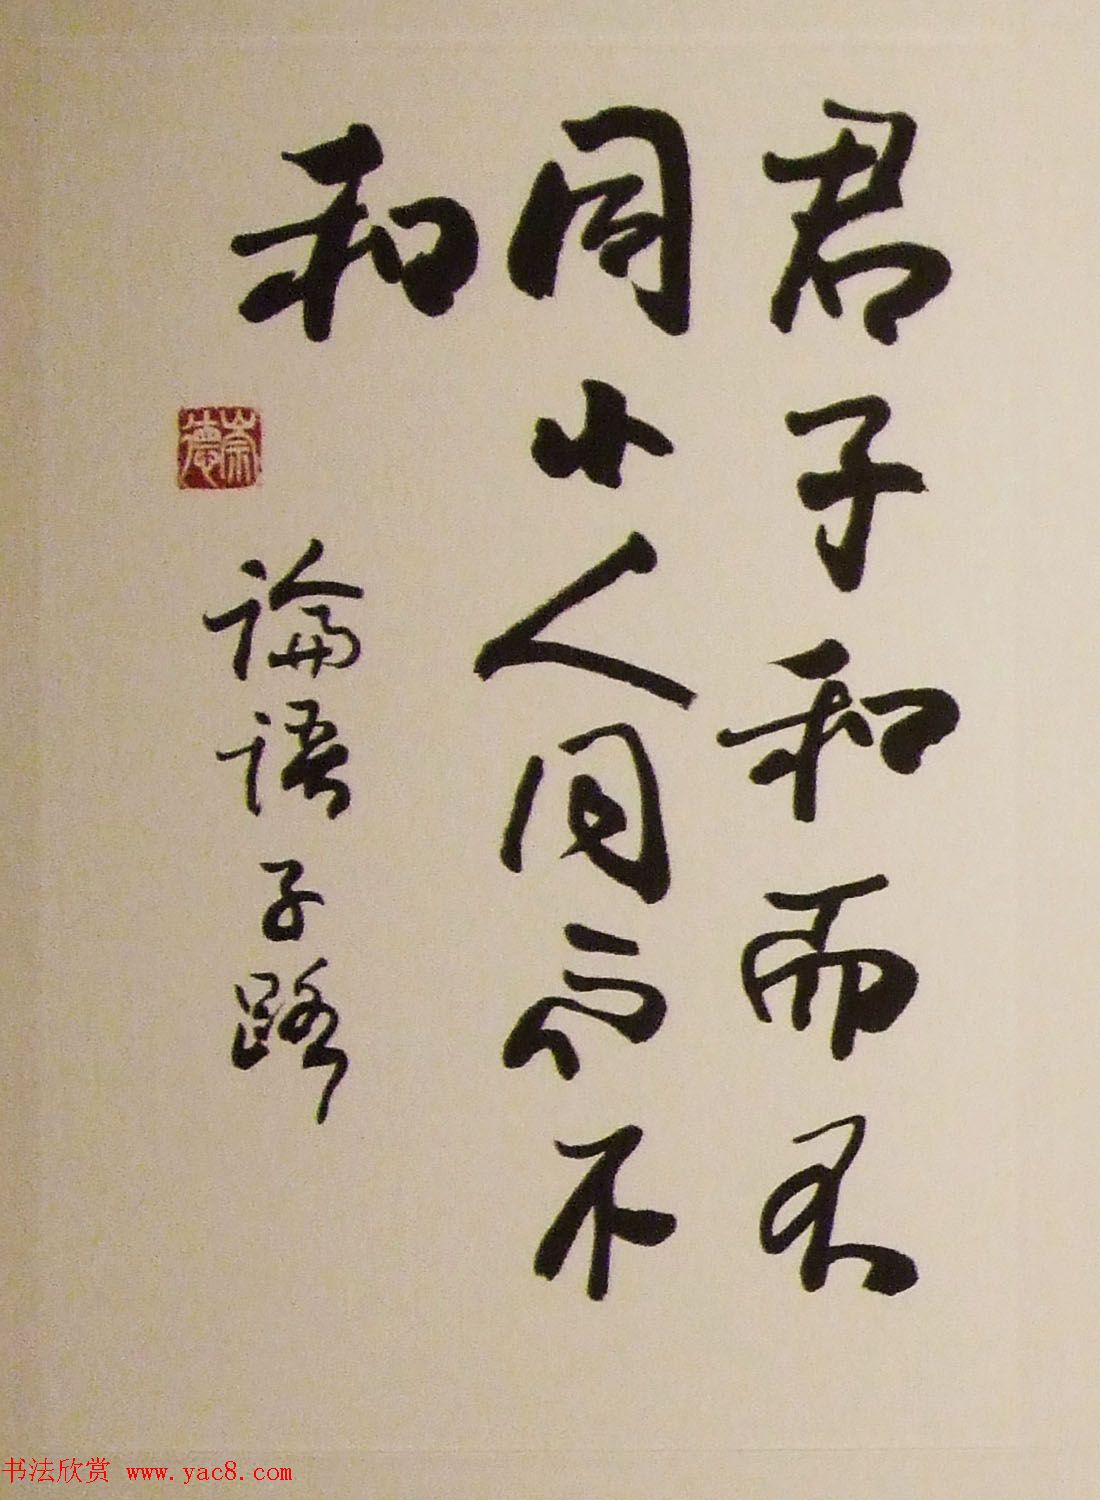 君子和而不
同小人同而不
和
論語子路
崇德
书法欣赏 www.yac8.com